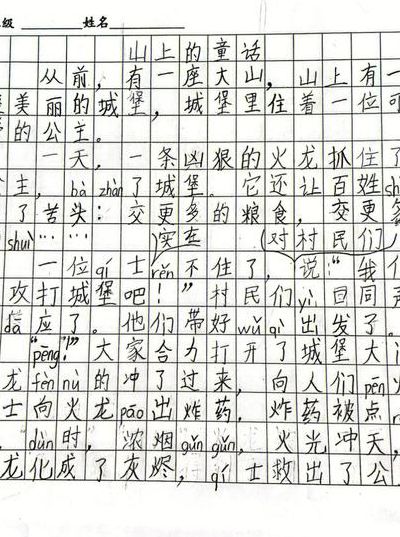 级 姓名
山上的童话
从前，有一座大山，山上有一
美丽的城堡，城堡里住着一位可
的公主。
一天，一条凶狠的火龙抓住了
主，bà zhàn了城堡。它还让百姓
了苦头：交更多的粮食，交更多
shuì…… 实在 （对村民们
一位qí士rěn不住了，说：“我们
攻打城堡吧！”村民们yì口同声
dā应了。他们带好wǔ qì出发了。
“pēng！”大家合力打开了城堡大门
龙fèn nù的冲了过来，向人们pēn火
士向火龙pāo出炸药，炸药被点
，dùn时，浓烟gǔn gǔn，火光冲天，
龙化成了灰烬，qí士救出了公